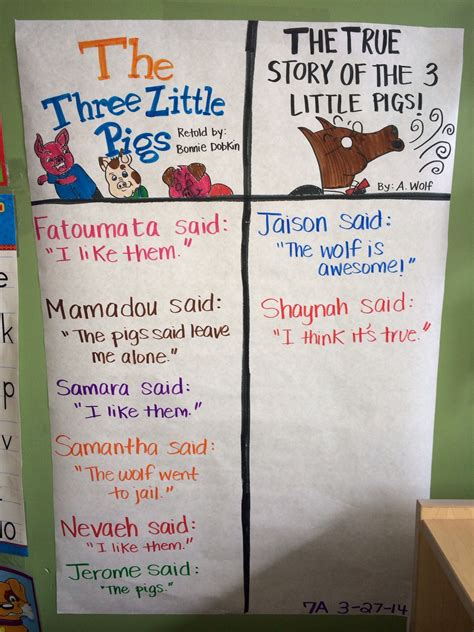 The
Three Little
Pigs
Retold by:
Bonnie Dobkin
THE TRUE
STORY OF THE 3
LITTLE PIGS!
By: A. Wolf
Fatoumata said:
"I like them."
Mamadou said:
"The pigs said leave
me alone."
Samara said:
"I like them."
Samantha said:
"The wolf went
to jail."
Nevaeh said:
"I like them."
Jerome said:
"The pigs."
Jaison said:
"The wolf is
awesome!"
Shaynah said:
"I think it's true."
7A 3-27-14